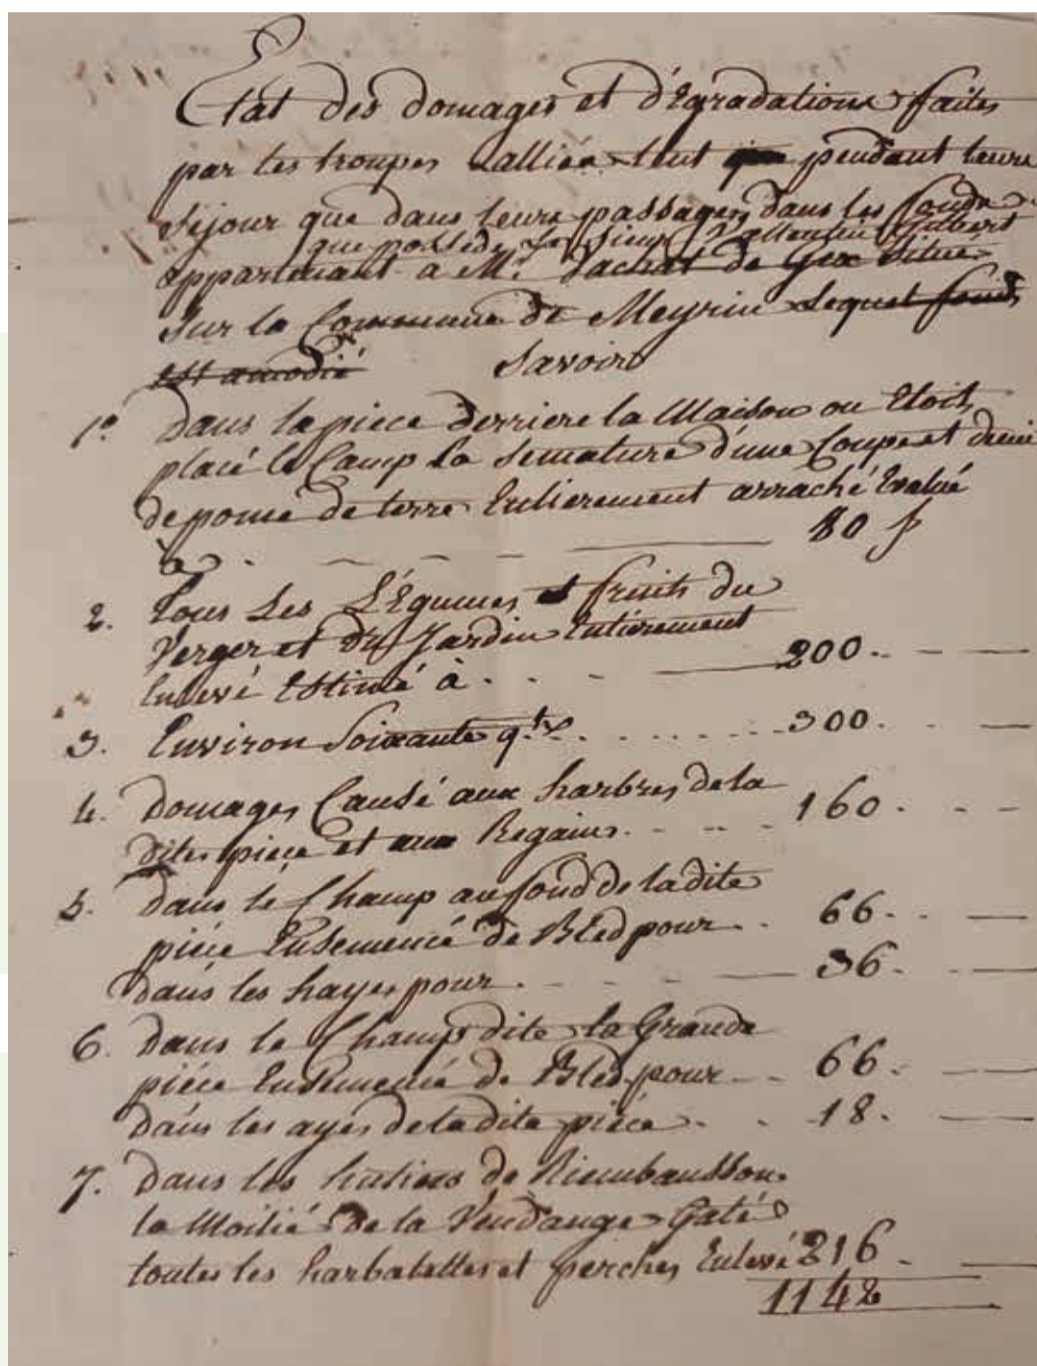 Etat des domages et d'Egradations faites
par les troupes alliée tant pendant leurs
séjour que dans leurs passages dans les fonds
que possède le Sieur Gibert
appartenant à Mr. Dachat de Gex Situé
Sur la Commune de Meyrin lequel fond
est amodié Savoir
1° Dans la piece derriere la Maison ou Etoit
placé le Camp la semature d'une Coupe et demi
de pome de terre Entierement arraché Evalué
à 80 f
2. Tous Les Légumes et fruits du
Verger et du Jardin Entierement
Enlevé Estimé à 200
3. Environ Soixante qtx 300
4. Domages Causé aux harbres de la
dites piece et aux Regains 160
5. Dans le Champ au fond de la dite
piéce Ensemencé de Bled pour 66
Dans les hayes pour 36
6. Dans le Champ dite la Grande
piéce Ensemencé de Bled pour 66
Dans les ayes de la dite piéce 18
7. Dans les hutins de
la Moitié de la Vendange Gaté
toutes les harbatelles et perches Enlevé 216
1142